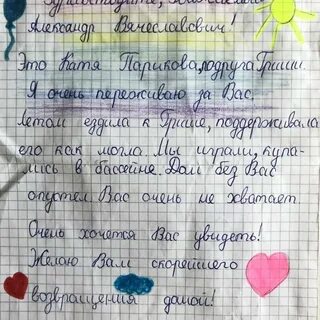 Здравствуйте,
Александр Вячеславович!
Это Катя Парикова, подруга Гриши.
Я очень переживаю за Вас.
Летом ездила к Грише, поддерживала
его как могла. Мы играли, купа-
лись в бассейне. Дом без Вас
опустел. Вас очень не хватает.
Очень хочется Вас увидеть!
Желаю Вам скорейшего
возвращения домой!